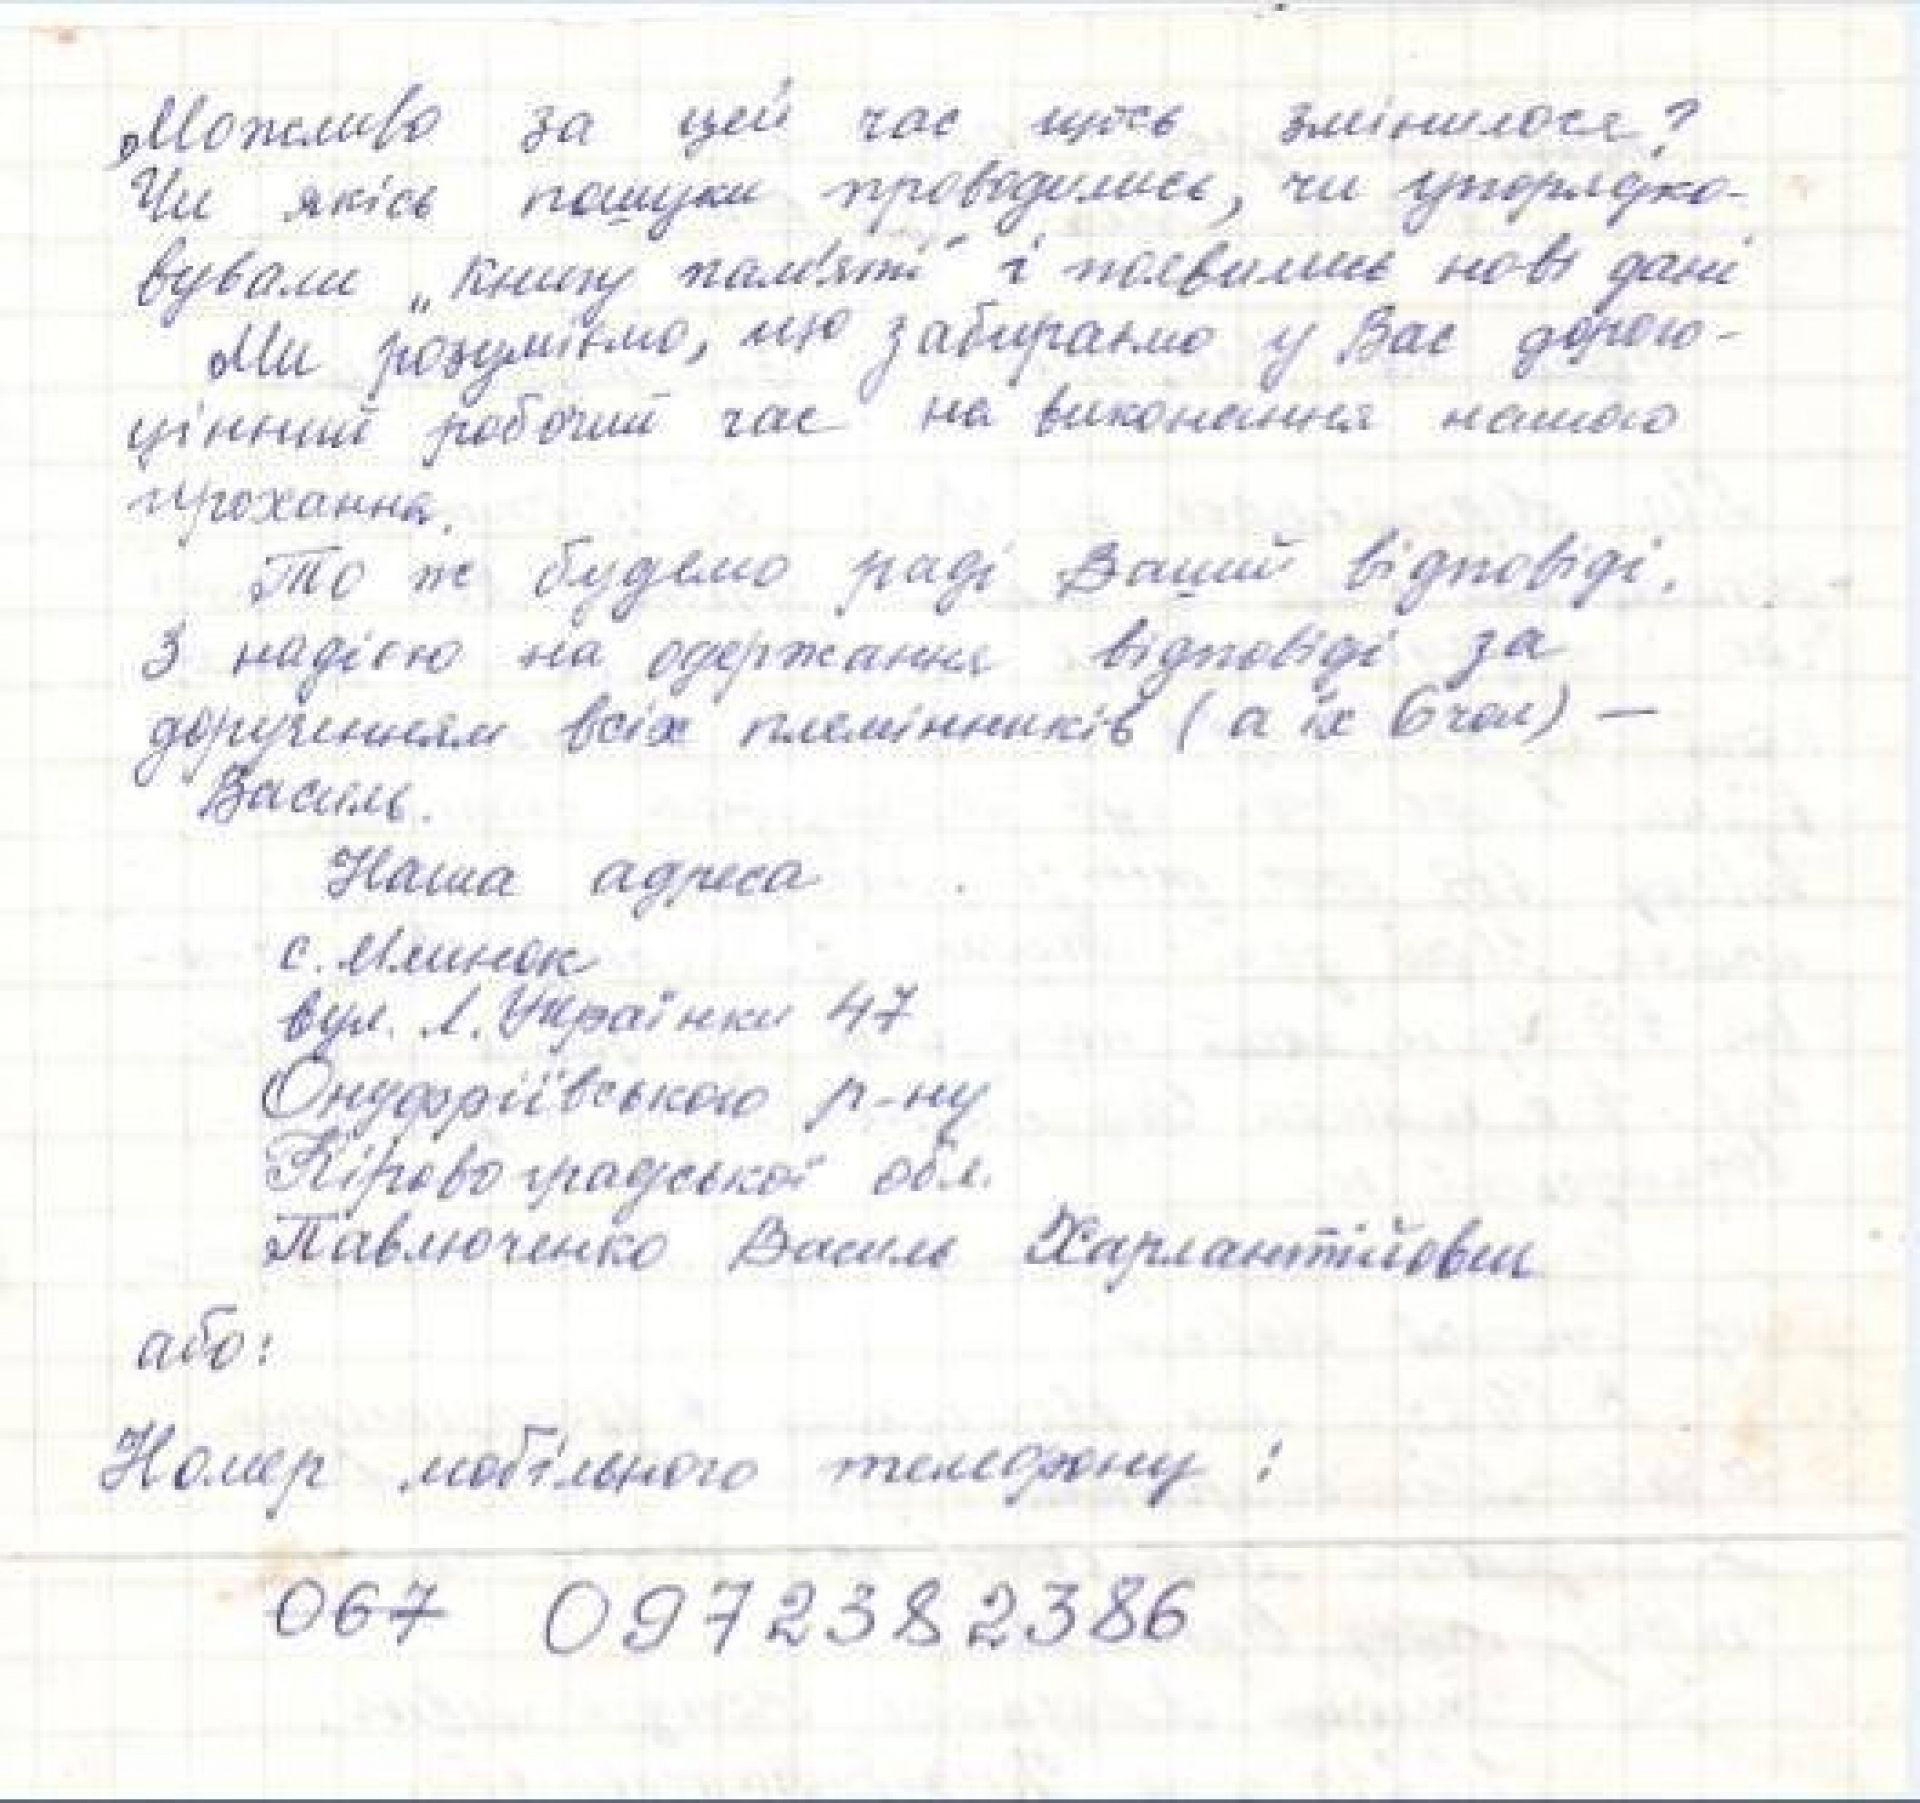 Можливо за цей час щось змінилося?
Чи якісь пошуки проводились, чи упорядко-
вували „Книгу пам'яті" і появились нові дані
Ми розуміємо, що забираємо у Вас дорого-
цінний робочий час на виконання нашого
прохання.
То ж будемо раді Вашій відповіді.
З надією на одержання відповіді за
дорученням всіх племінників (а їх 6 чол) —
Василь.
Наша адреса
с. Млинок
вул. Л. Українки 47
Онуфріївського р-ну
Кіровоградської обл.
Павлюченко Василь Харлантійович
або:
Номер мобільного телефону:
067 0972382386